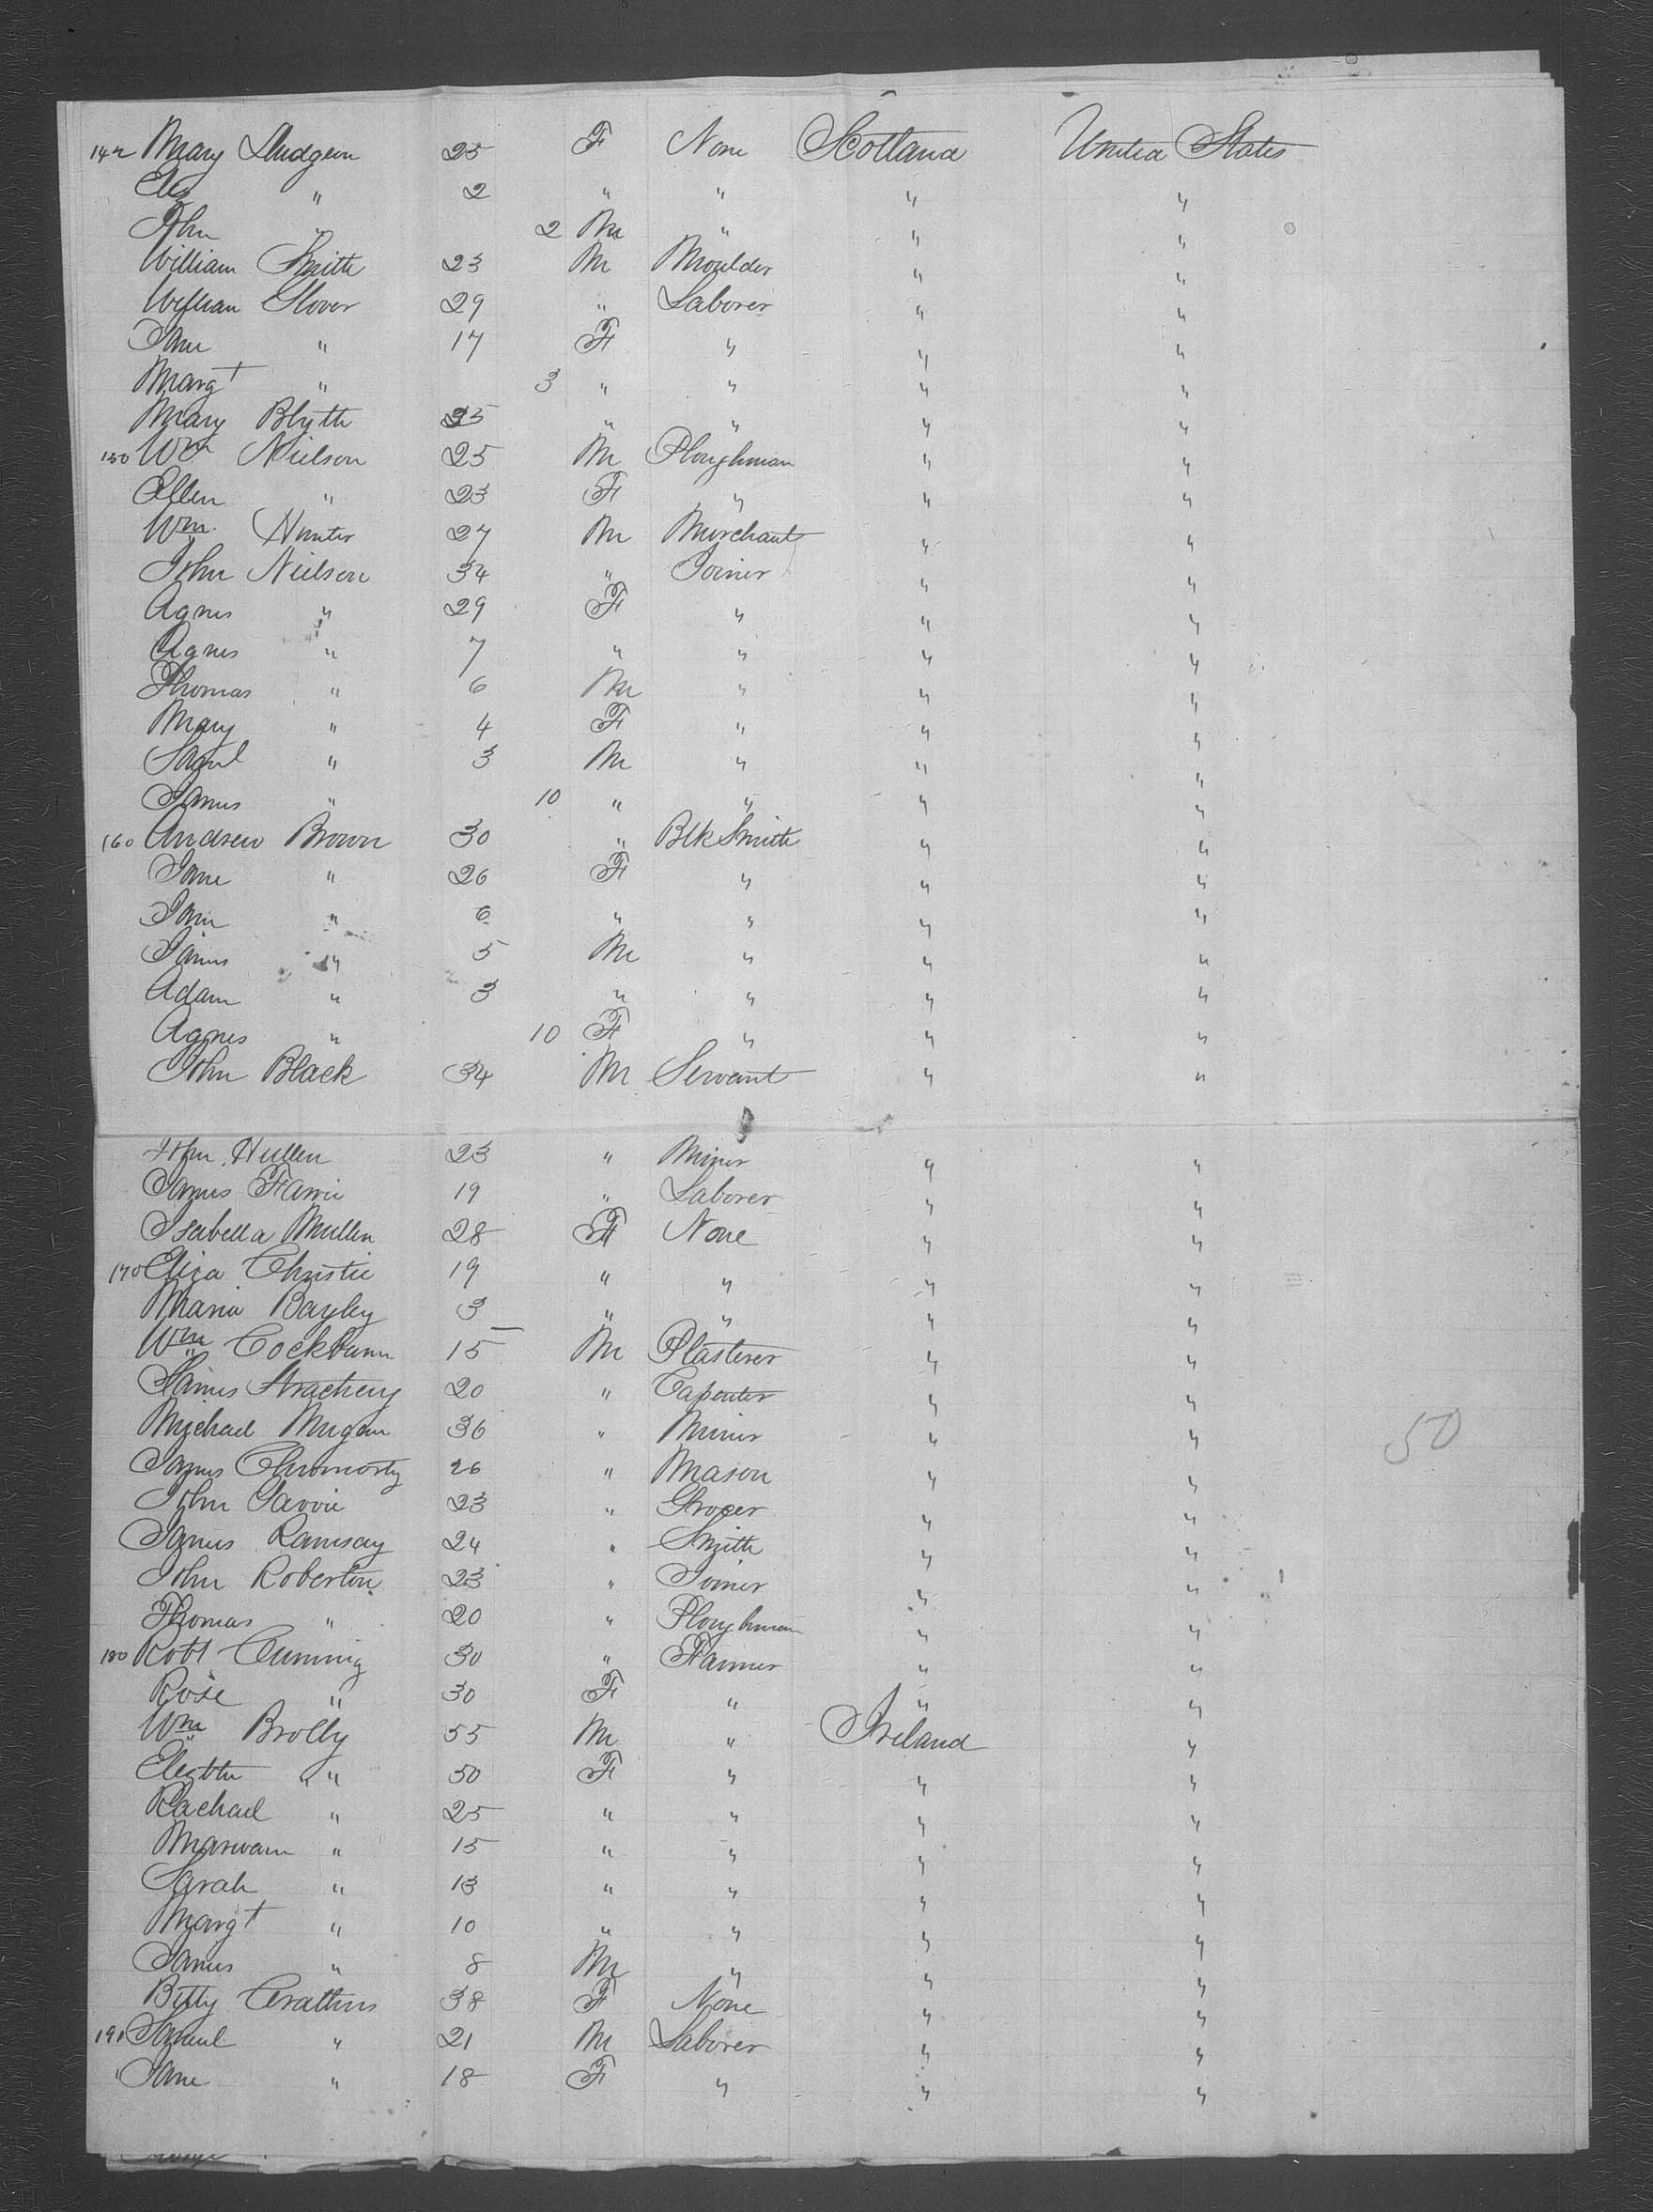 142 Mary Dudgeon 25 F None Scotland United States
Eliz " 2 " " " "
John " 2 M " " "
William Smith 23 M Moulder " "
William Glover 29 " Laborer " "
Jane " 17 F " " "
Margt " 3 " " " "
Mary Blyth 25 " " " "
150 Wm Nielson 25 M Ploughman " "
Ellen " 23 F " " "
Wm Hunter 27 M Merchant " "
John Nielson 34 " Joiner " "
Agnes " 29 F " " "
Agnes " 7 " " " "
Thomas " 6 M " " "
Mary " 4 F " " "
Saml " 3 M " " "
James " 10 " " " "
160 Andrew Brown 30 " Blk Smith " "
Jane " 26 F " " "
Jane " 6 " " " "
James " 5 M " " "
Adam " 3 " " " "
Agnes " 10 F " " "
John Black 34 M Servant " "
John Hullen 23 " Miner " "
James Fawrie 19 " Laborer " "
Isabella Mullen 28 F None " "
170 Eliza Christie 19 " " " "
Maria Bayley 3 " " " "
Wm Cockburn 15 M Plasterer " "
James Stracheny 20 " Capenter " "
Michael Mugan 36 " Miner " " 50
James 26 " Mason " "
John Gavvie 23 " Grocer " "
James Ramsay 24 " Smith " "
John Roberton 23 " Joiner " "
Thomas " 20 " Ploughman " "
180 Robt Cumming 30 " Farmer " "
Rose " 30 F " " "
Wm Brolly 55 M " Ireland "
Elezbth " 50 F " " "
Rachael " 25 " " " "
" 15 " " " "
Sarah " 13 " " " "
Margt " 10 " " " "
James " 8 M " " "
Betty Crathers 38 F None " "
191 Samuel " 21 M Laborer " "
" Jane " 18 F " " "